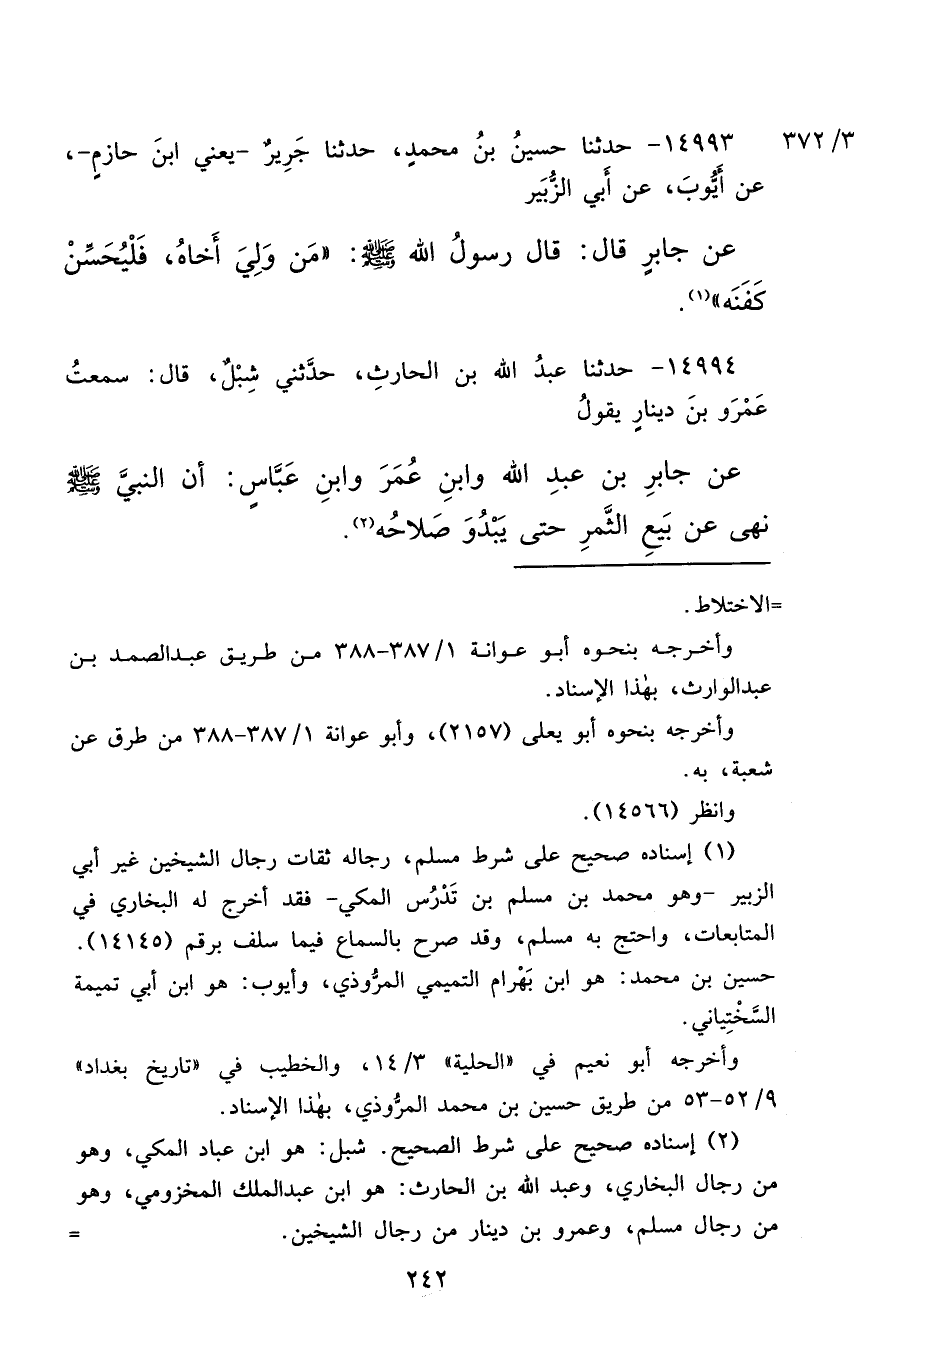 ٣٧٢/٣ ١٤٩٩٣- حدثنا حسينُ بنُ محمدٍ، حدثنا جَرِيرٌ -يعني ابنَ حازمٍ-،
عن أَيُّوبَ، عن أَبي الزُّبَير
عن جابرٍ قال: قال رسولُ الله ﷺ: «مَن وَلِيَ أَخاهُ، فَلْيُحَسِّنْ
كَفَنَه»(١).
١٤٩٩٤- حدثنا عبدُ الله بن الحارثِ، حدَّثني شِبْلٌ، قال: سمعتُ
عَمْرَو بنَ دينارٍ يقولُ
عن جابرِ بن عبدِ الله وابنِ عُمَرَ وابنِ عَبَّاسٍ: أن النبيَّ ﷺ
نهى عن بَيعِ الثَّمرِ حتى يَبْدُوَ صَلاحُه(٢).
=الاختلاط.
وأخرجه بنحوه أبو عوانة ٣٨٧/١-٣٨٨ من طريق عبدالصمد بن
عبدالوارث، بهٰذا الإسناد.
وأخرجه بنحوه أبو يعلى (٢١٥٧)، وأبو عوانة ٣٨٧/١-٣٨٨ من طرق عن
شعبة، به.
وانظر (١٤٥٦٦).
(١) إسناده صحيح على شرط مسلم، رجاله ثقات رجال الشيخين غير أبي
الزبير -وهو محمد بن مسلم بن تَدْرُس المكي- فقد أخرج له البخاري في
المتابعات، واحتج به مسلم، وقد صرح بالسماع فيما سلف برقم (١٤١٤٥).
حسين بن محمد: هو ابن بَهْرام التميمي المرُّوذي، وأيوب: هو ابن أبي تميمة
السَّخْتِياني.
وأخرجه أبو نعيم في «الحلية» ١٤/٣، والخطيب في «تاريخ بغداد»
٥٢/٩-٥٣ من طريق حسين بن محمد المرُّوذي، بهٰذا الإسناد.
(٢) إسناده صحيح على شرط الصحيح. شبل: هو ابن عباد المكي، وهو
من رجال البخاري، وعبد الله بن الحارث: هو ابن عبدالملك المخزومي، وهو
من رجال مسلم، وعمرو بن دينار من رجال الشيخين. =
٢٤٢